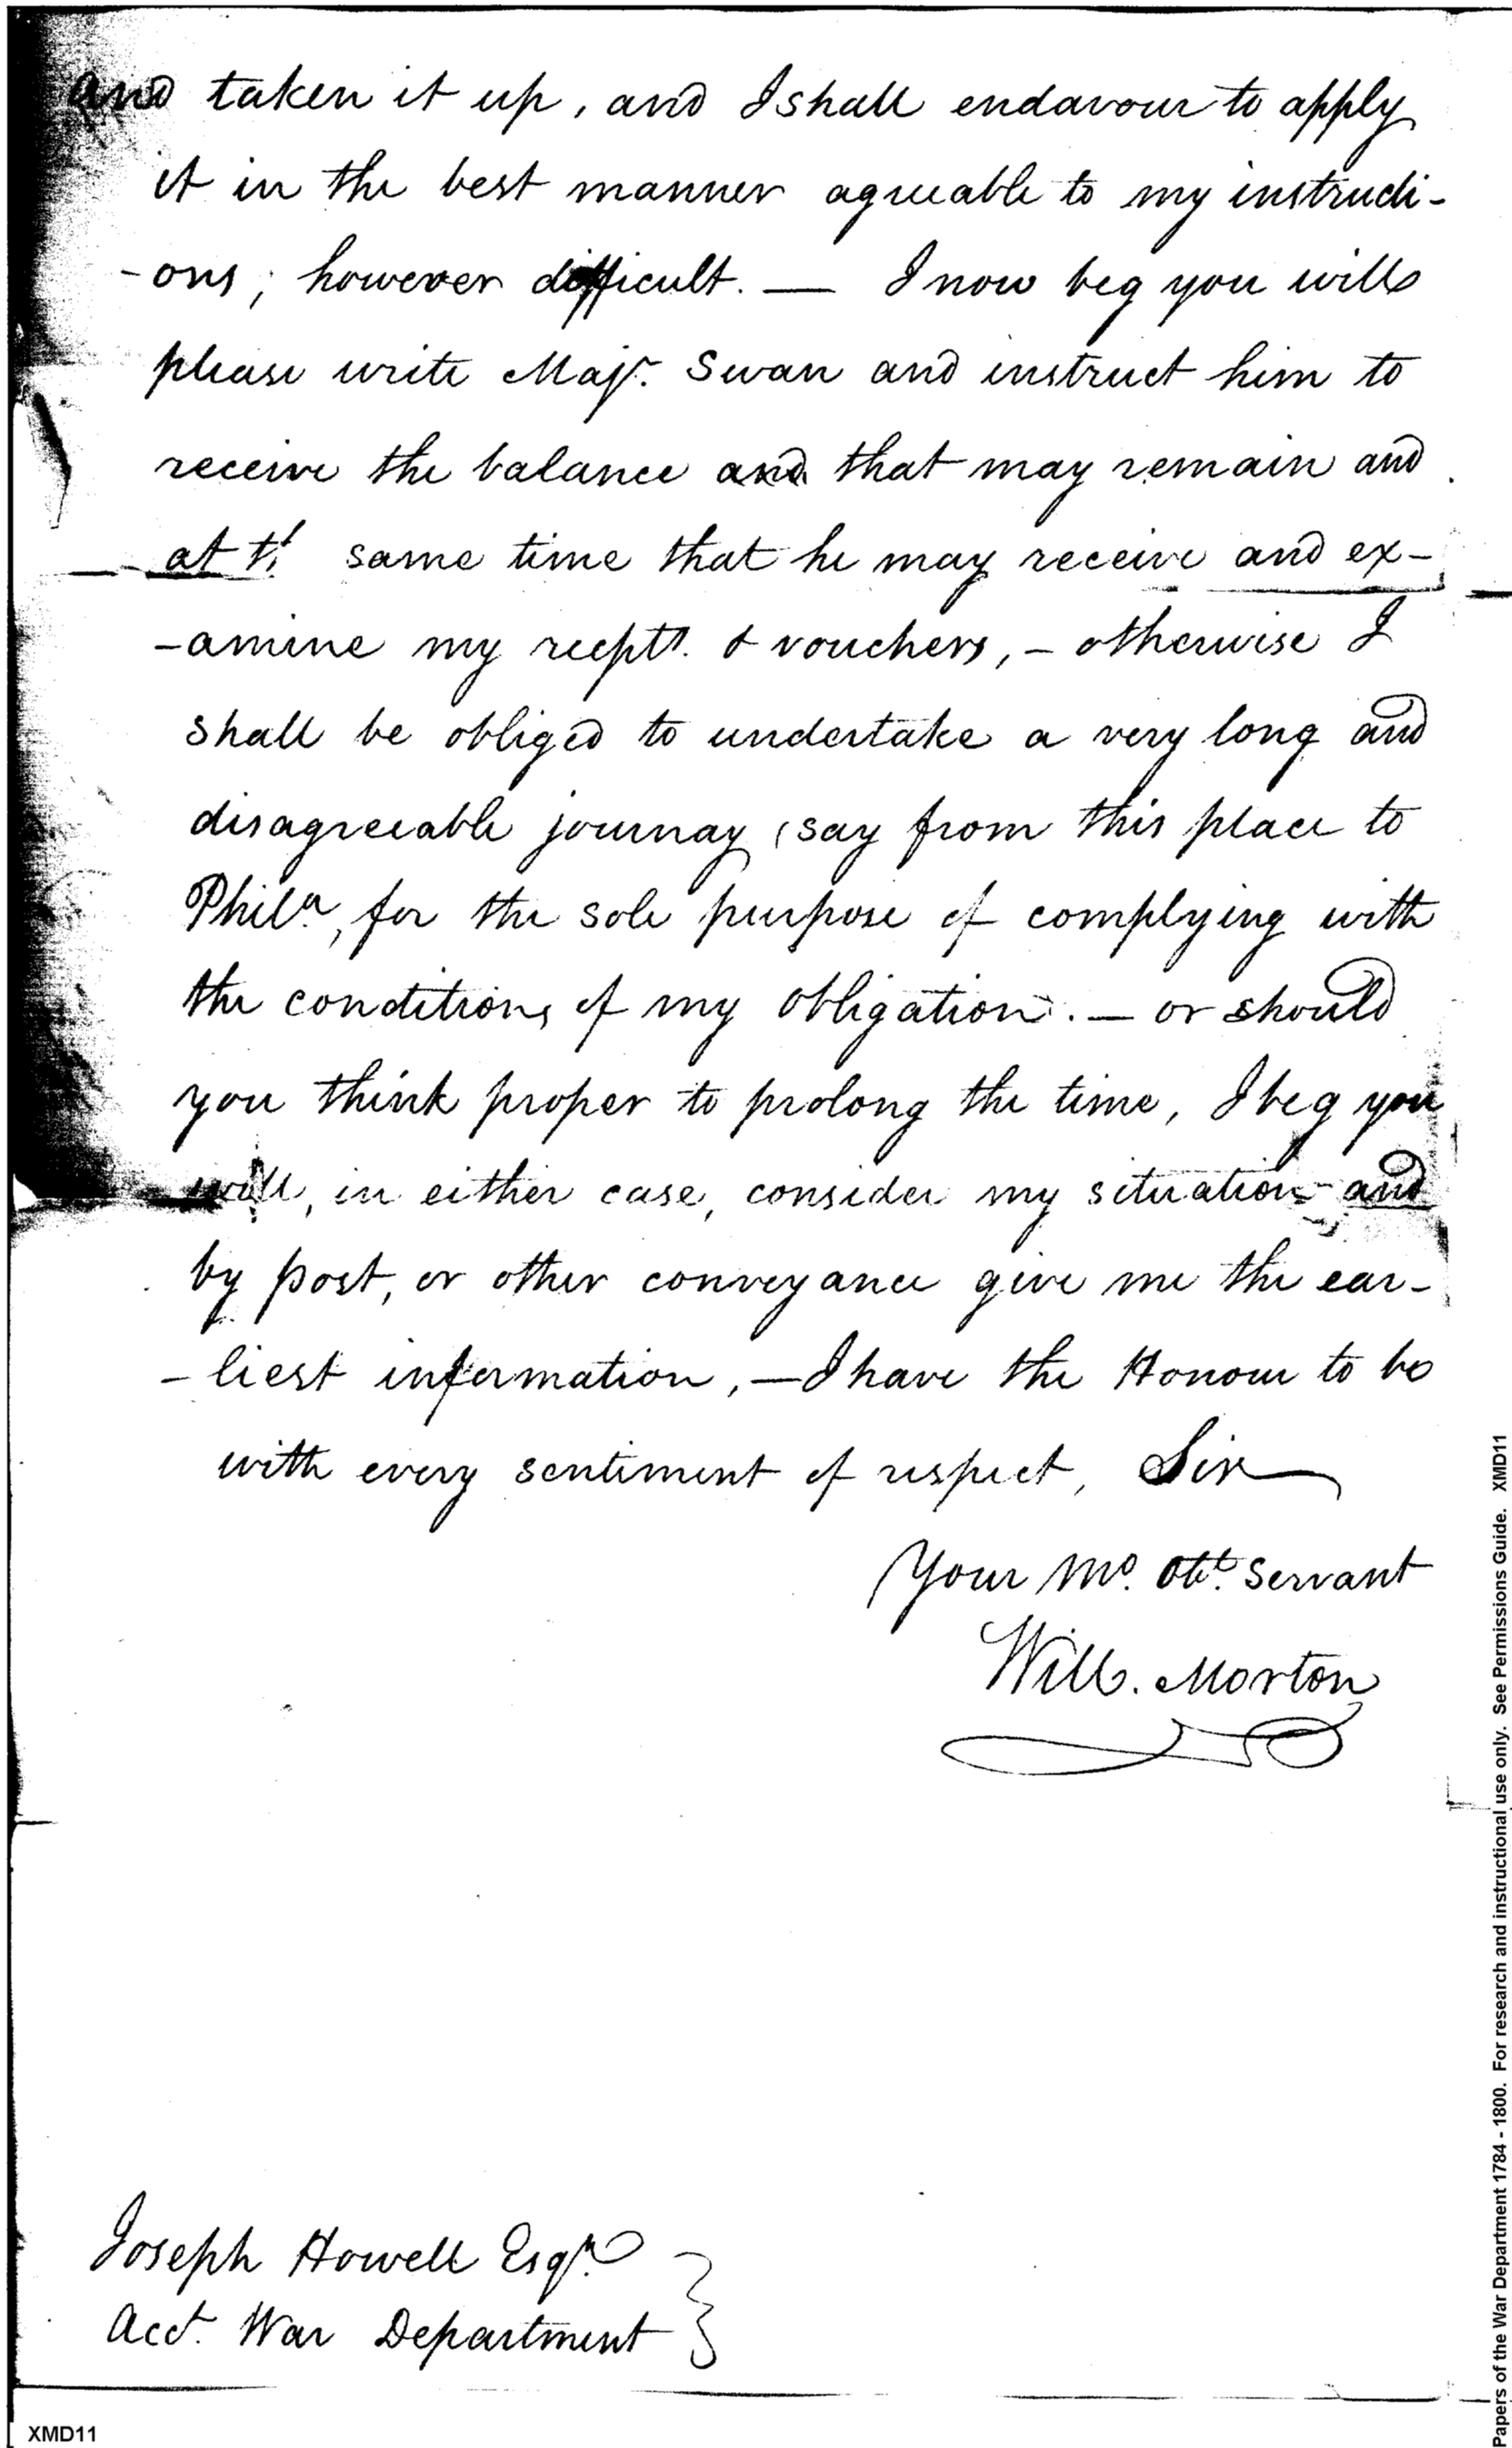 and taken it up, and I shall endavour to apply
it in the best manner agreeable to my instructi-
-ons; however difficult. — I now beg you will
please write Majr. Swan and instruct him to
receive the balance and that may remain and
at ye same time that he may receive and ex-
-amine my recpts. & vouchers, - otherwise I
shall be obliged to undertake a very long and
disagreeable journay, say from this place to
Phila., for the sole purpose of complying with
the conditions of my obligation. — or should
you think proper to prolong the time, I beg you
will, in either case, consider my situation and
by post, or other conveyance give me the ear-
-liest information, — I have the Honour to be
with every sentiment of respect, Sir
Your Mo. Obt. Servant
Will. Morton
Joseph Howell Esqr.
Acct. War Department
XMD11
Papers of the War Department 1784 - 1800. For research and instructional use only. See Permissions Guide. XMD11